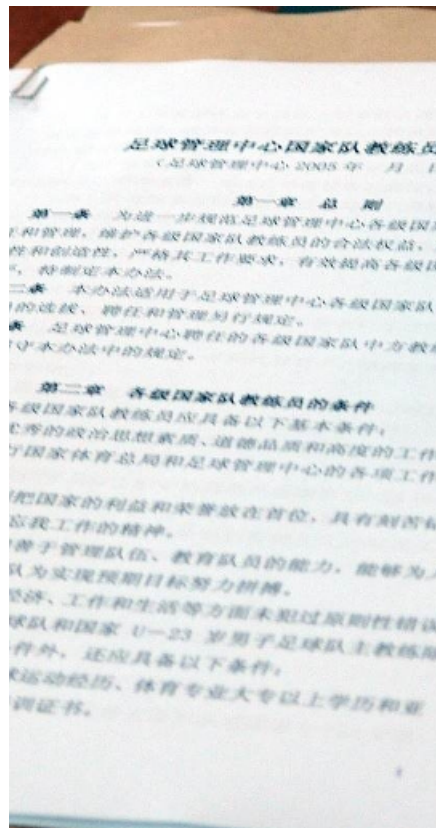 足球管理中心国家队教练员
（足球管理中心 2005 年 月
第一章 总 则
第一条 为进一步规范足球管理中心各级国家
任和管理，维护各级国家队教练员的合法权益，
性和创造性，严格其工作要求，有效提高各级国
，特制定本办法。
二条 本办法适用于足球管理中心各级国家队
的选拔、聘任和管理另行规定。
条 足球管理中心聘任的各级国家队中方教练
守本办法中的规定。
第二章 各级国家队教练员的条件
各级国家队教练员应具备以下基本条件：
优秀的政治思想素质、道德品质和高度的工作
行国家体育总局和足球管理中心的各项工作
把国家的利益和荣誉放在首位，具有刻苦钻
忘我工作的精神。
善于管理队伍、教育队员的能力，能够为
队为实现预期目标努力拼搏。
经济、工作和生活等方面未犯过原则性错误
球队和国家 U—23 岁男子足球队主教练除
件外，还应具备以下条件：
运动经历、体育专业大专以上学历和亚
训证书。